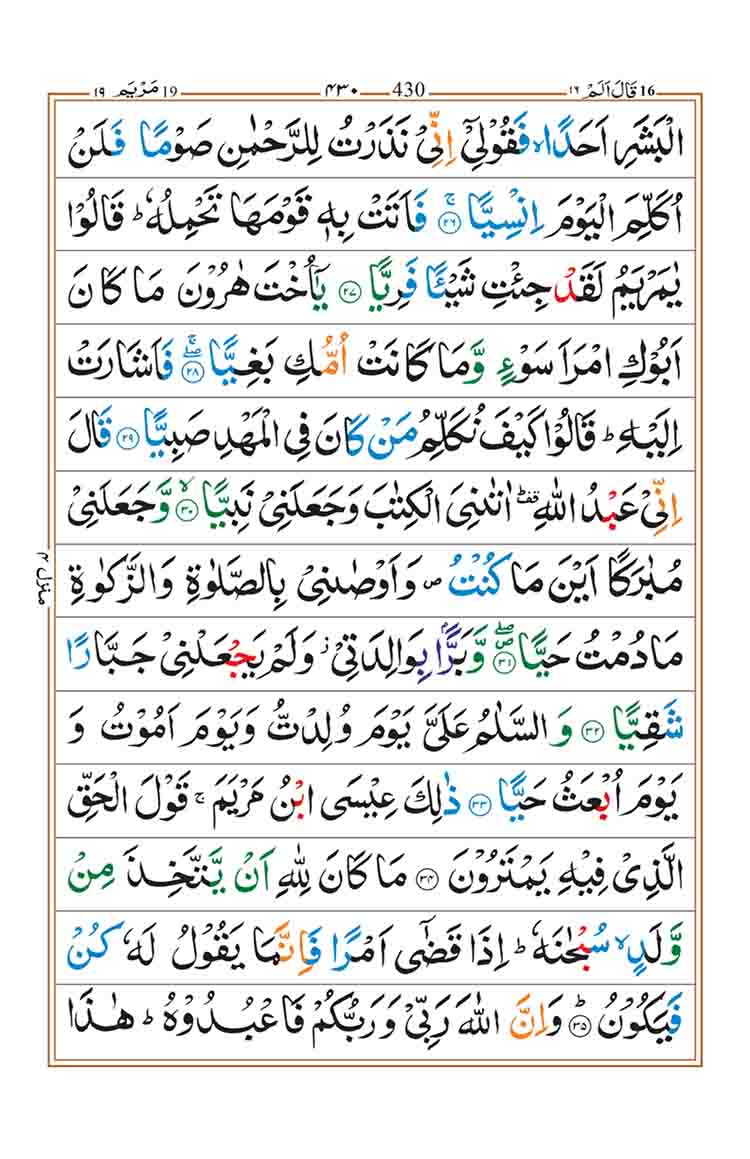 16 قَالَ اَلَمْ ١٦ 430 ٤٣٠ 19 مَرْيَم ١٩
الْبَشَرِ اَحَدًاۙ فَقُوْلِیْۤ اِنِّیْ نَذَرْتُ لِلرَّحْمٰنِ صَوْمًا فَلَنْ
اُكَلِّمَ الْیَوْمَ اِنْسِیًّاۚ ۝۲۶ فَاَتَتْ بِهٖ قَوْمَهَا تَحْمِلُهٗؕ قَالُوْا
یٰمَرْیَمُ لَقَدْ جِئْتِ شَیْـًٔا فَرِیًّا ۝۲۷ یٰۤاُخْتَ هٰرُوْنَ مَا كَانَ
اَبُوْكِ امْرَاَ سَوْءٍ وَّمَا كَانَتْ اُمُّكِ بَغِیًّاۖۚ ۝۲۸ فَاَشَارَتْ
اِلَیْهِؕ قَالُوْا كَیْفَ نُكَلِّمُ مَنْ كَانَ فِی الْمَهْدِ صَبِیًّا ۝۲۹ قَالَ
اِنِّیْ عَبْدُ اللّٰهِ۫ؕ اٰتٰىنِیَ الْكِتٰبَ وَجَعَلَنِیْ نَبِیًّاۙ ۝۳۰ وَّجَعَلَنِیْ
مُبٰرَكًا اَیْنَ مَا كُنْتُ۪ وَاَوْصٰىنِیْ بِالصَّلٰوةِ وَالزَّكٰوةِ
مَا دُمْتُ حَیًّا۪ۖ ۝۳۱ وَّبَرًّۢا بِوَالِدَتِیْؗ وَلَمْ یَجْعَلْنِیْ جَبَّارًا
شَقِیًّا ۝۳۲ وَالسَّلٰمُ عَلَیَّ یَوْمَ وُلِدْتُّ وَیَوْمَ اَمُوْتُ وَ
یَوْمَ اُبْعَثُ حَیًّا ۝۳۳ ذٰلِكَ عِیْسَی ابْنُ مَرْیَمَۚ قَوْلَ الْحَقِّ
الَّذِیْ فِیْهِ یَمْتَرُوْنَ ۝۳۴ مَا كَانَ لِلّٰهِ اَنْ یَّتَّخِذَ مِنْ
وَّلَدٍۙ سُبْحٰنَهٗؕ اِذَا قَضٰۤی اَمْرًا فَاِنَّمَا یَقُوْلُ لَهٗ كُنْ
فَیَكُوْنُؕ ۝۳۵ وَاِنَّ اللّٰهَ رَبِّیْ وَرَبُّكُمْ فَاعْبُدُوْهُؕ هٰذَا
منزل ۴